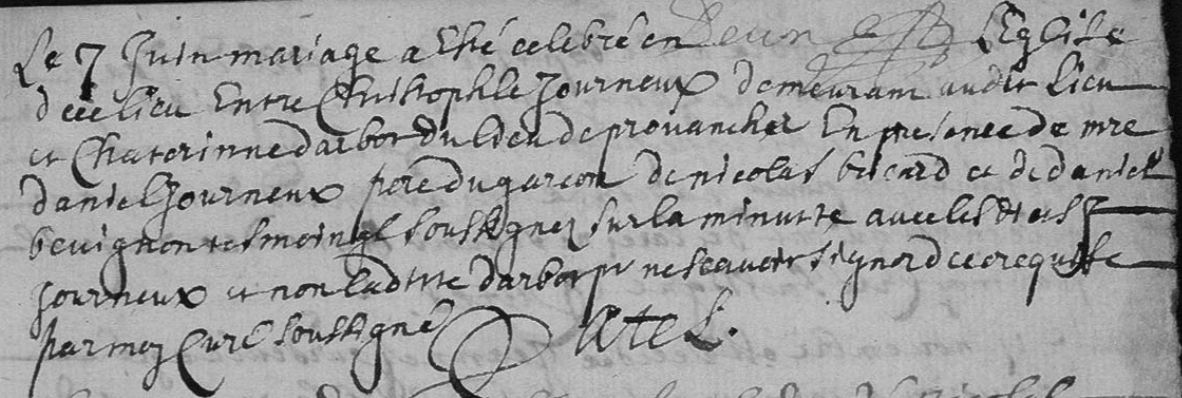 Le 7 Juin mariage a Esté celebré en L'Eglise
de ce lieu Entre Christophle Journeux demeurant audit lieu
et Chaterinne darbor du lieu de provancher En presence de mre
daniel Journeux pere du garcon de nicolas besard et de daniel
bevignon tesmoings soussignez sur la minutte avec lesdits
Journeux et non laditte darbor pr ne scavoir signer de ce requise
par moy Curé soussigné